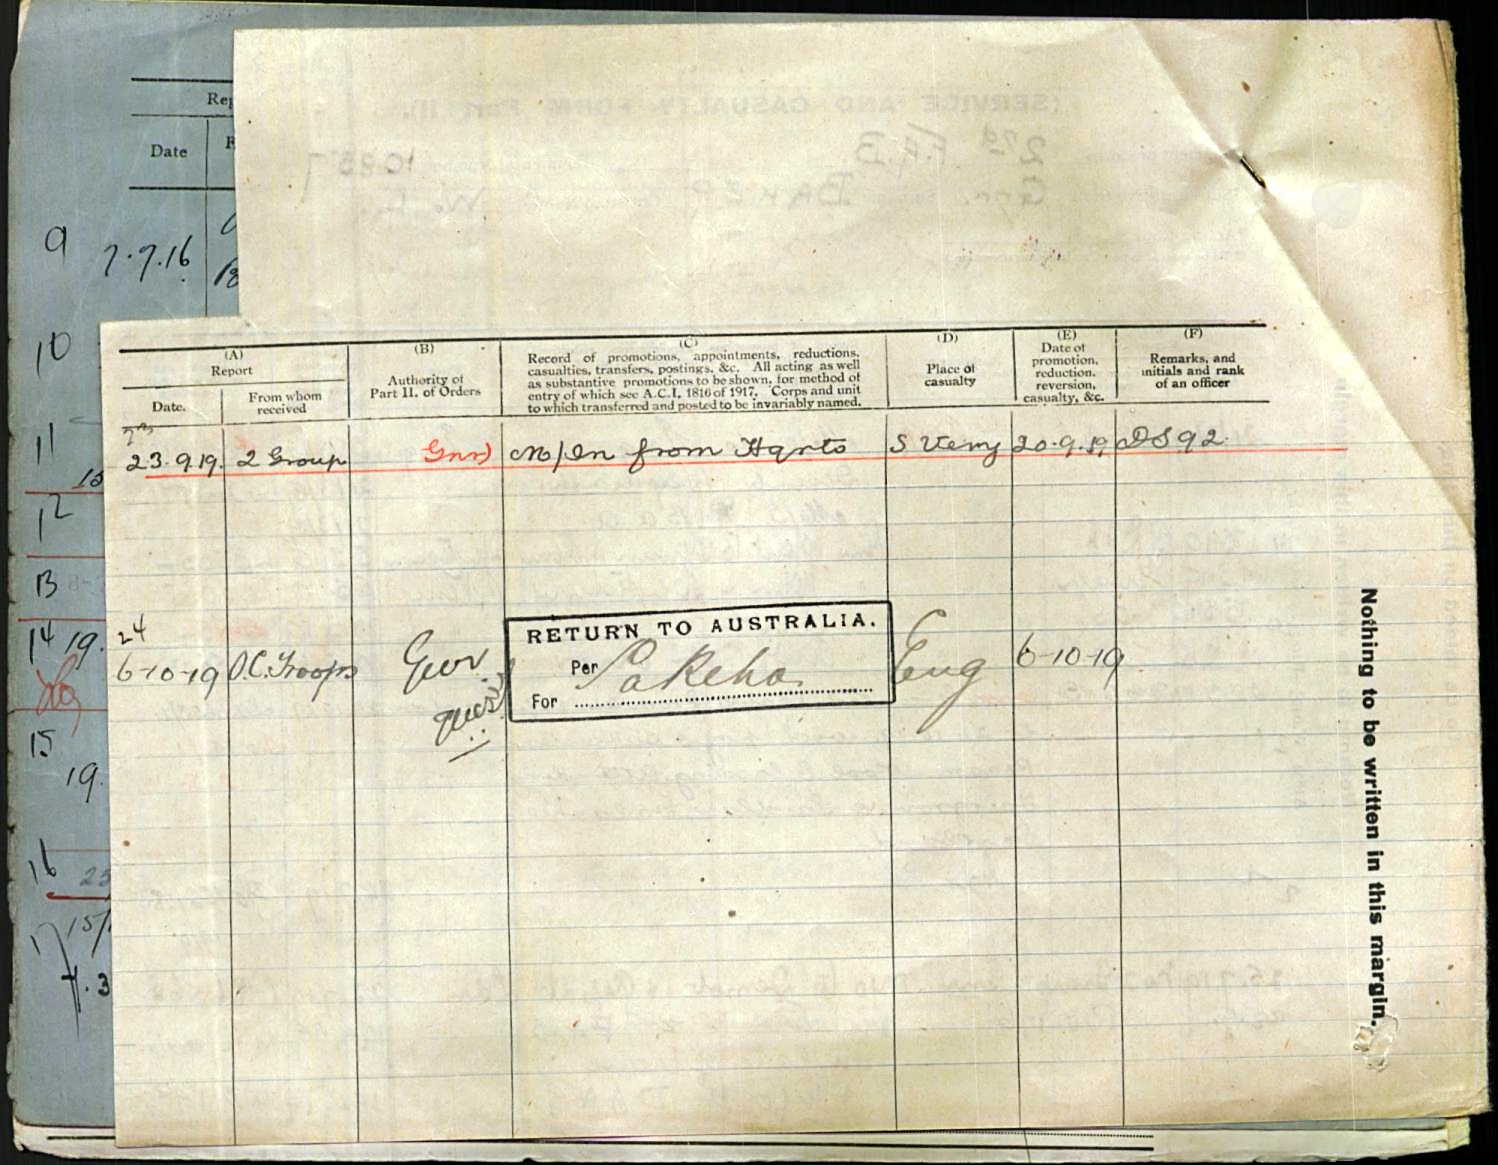 Date
9
7.7.16
10
11
12
13
14
19.
15
19.
16
23
15/
17
7.3
(A)
Report
Date.
From whom
received
(B)
Authority of
Part II. of Orders
(C)
Record of promotions, appointments, reductions,
casualties, transfers, postings, &c. All acting as well
as substantive promotions to be shown, for method of
entry of which see A.C.I. 1816 of 1917. Corps and unit
to which transferred and posted to be invariably named.
(D)
Place of
casualty
(E)
Date of
promotion,
reduction,
reversion,
casualty, &c.
(F)
Remarks, and
initials and rank
of an officer
23
23.9.19. 2 Group Gnr M/In from Hqrts S Veny 20.9.19 DS 92.
24
6-10-19 O.C. Troops Gnr. Eng 6-10-19
RETURN TO AUSTRALIA.
Per Pakeha
For
Nothing to be written in this margin.